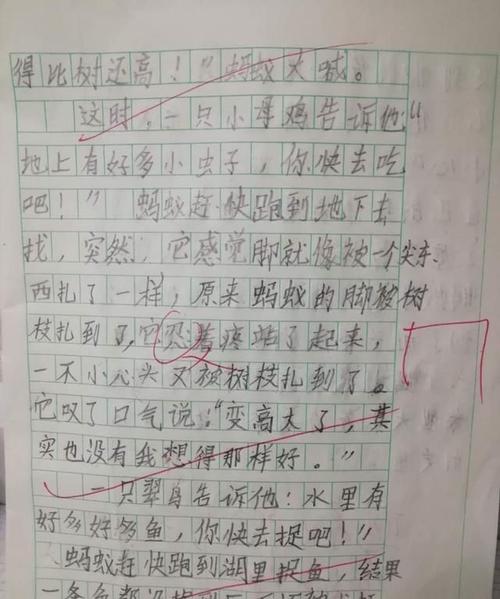 得比树还高！”蚂蚁大喊。
这时，一只小母鸡告诉他：“
地上有好多小虫子，你快去吃
吧！”蚂蚁赶快跑到地下去
找，突然，它感觉脚就像被一个尖东
西扎了一样，原来蚂蚁的脚被树
枝扎到了，它忍着疼站了起来，
一不小心头又被树枝扎到了。
它叹了口气说：“变高大了，其
实也没有我想得那样好。”
一只翠鸟告诉他：水里有
好多好多鱼，你快去捉吧！”
蚂蚁赶快跑到湖里捉鱼，结果
一条鱼都没